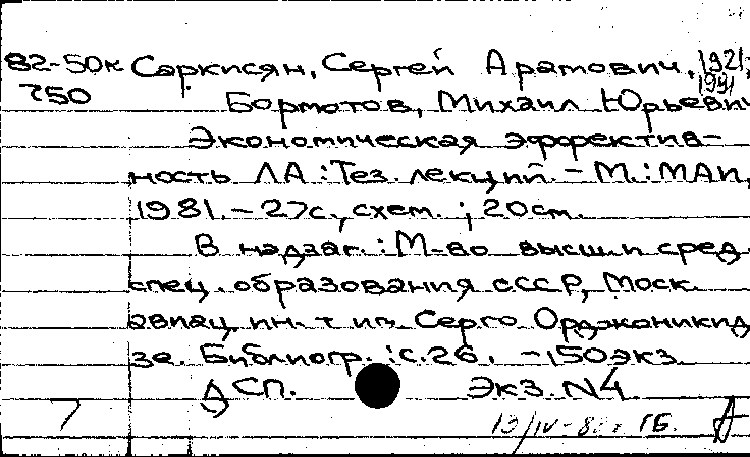 82-50к Саркисян, Сергей Арамович, 1921,
750 1981
Бормотов, Михаил Юрьевич
Экономическая эффектив-
ность ЛА : Тез. лекций. - М. : МАИ,
1981. - 27с., схем. ; 20см.
В надзаг. : М-во высш. и сред.
спец. образования СССР, Моск.
авиац. ин. т им. Серго Орджоникид
зе. Библиогр. : с.26. - 150экз.
ДСП. Экз. N4
7 13/IV-8 г. ГБ.